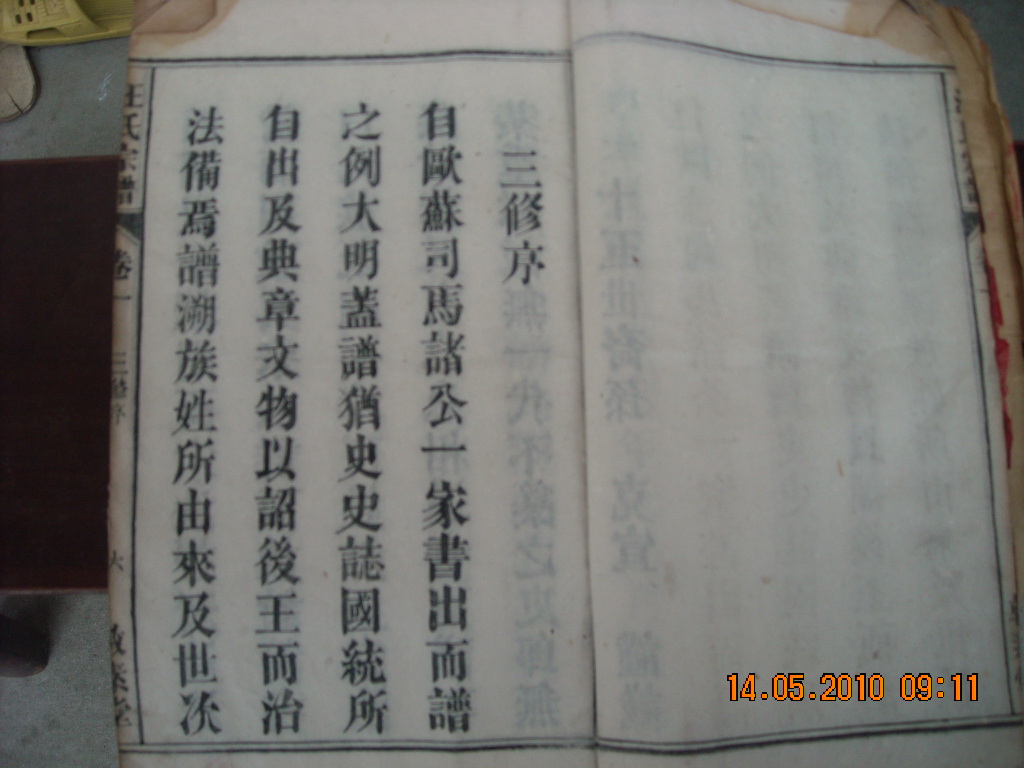 三修序
自歐蘇司馬諸公一家書出而譜
之例大明蓋譜猶史史誌國統所
自出及典章文物以詔後王而治
法備焉譜溯族姓所由來及世次
汪氏宗譜
卷一
三修序
六
敦素堂
14.05.2010 09:11